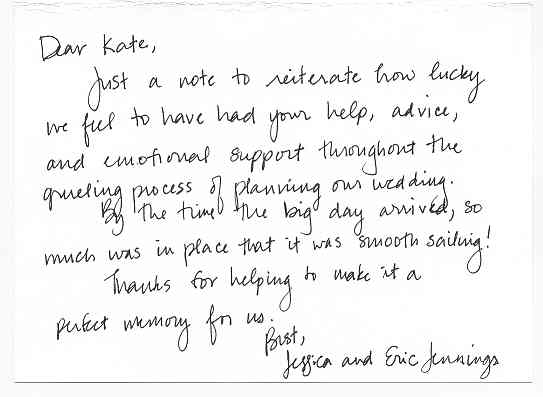 Dear Kate,
Just a note to reiterate how lucky
we feel to have had your help, advice,
and emotional support throughout the
grueling process of planning our wedding.
By the time the big day arrived, so
much was in place that it was smooth sailing!
Thanks for helping to make it a
perfect memory for us.
Best,
Jessica and Eric Jennings